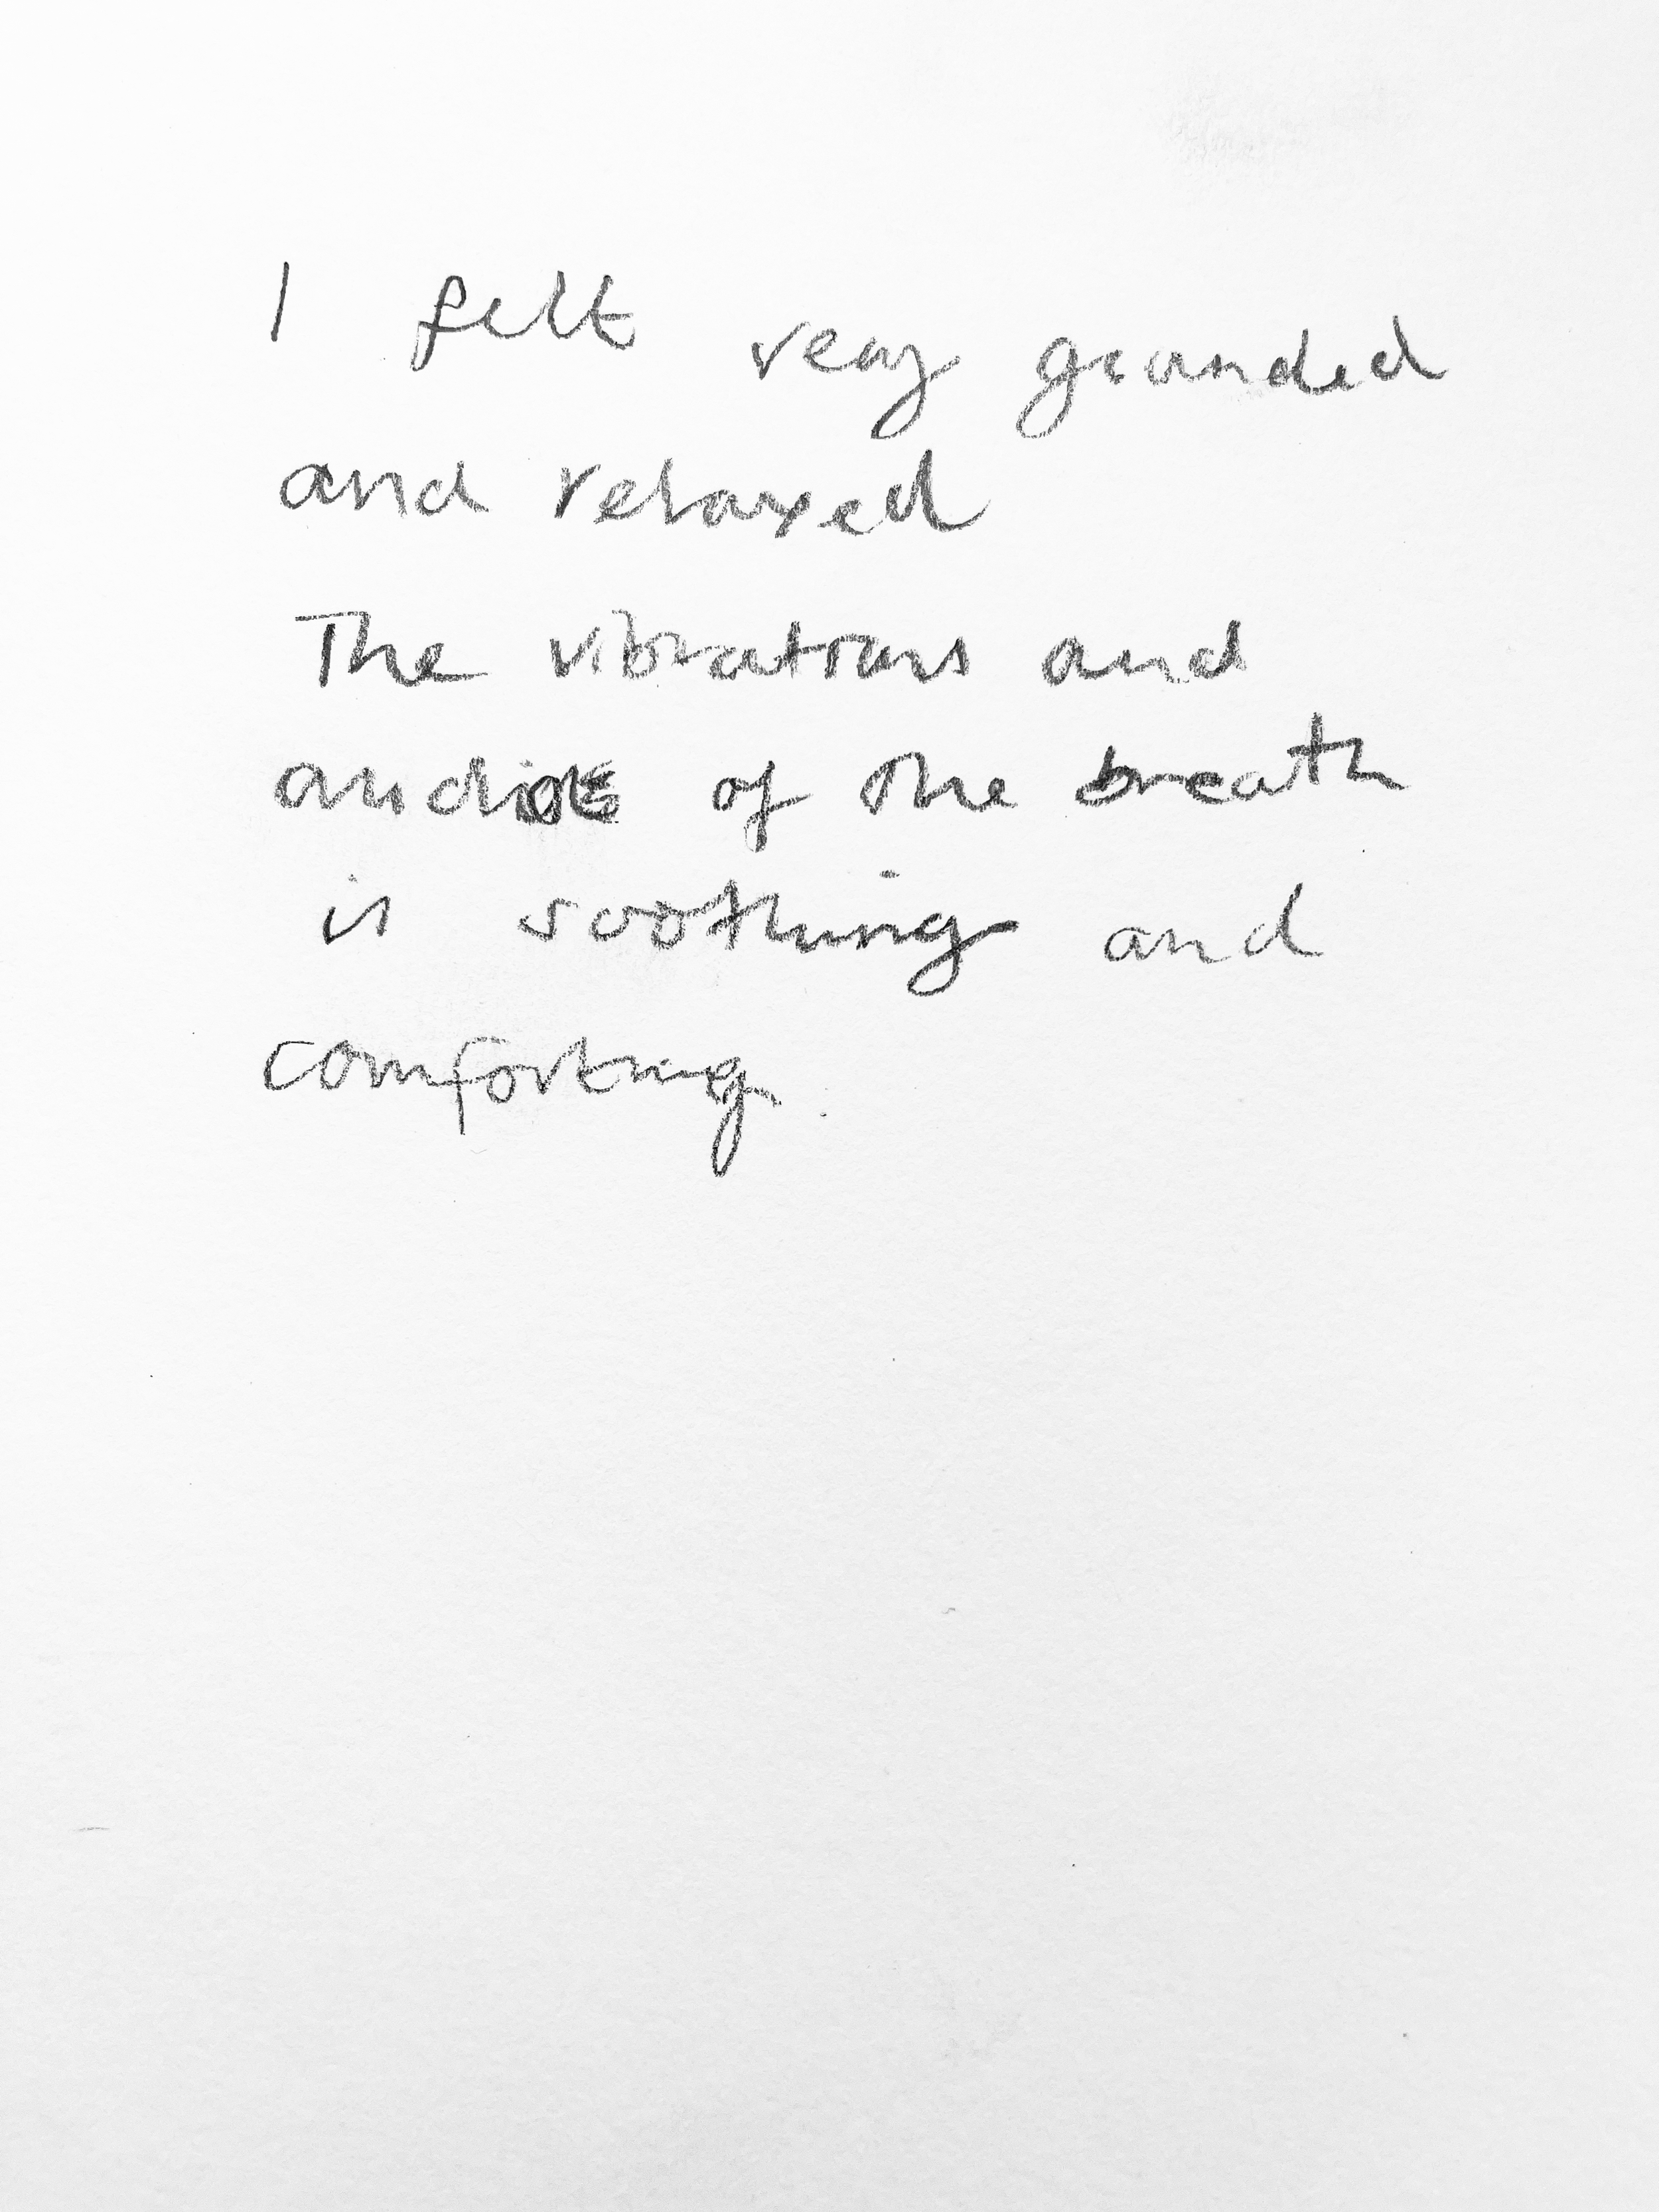 I felt very grounded
and relaxed
The vibrations and
audios of the breath
is soothing and
comforting.